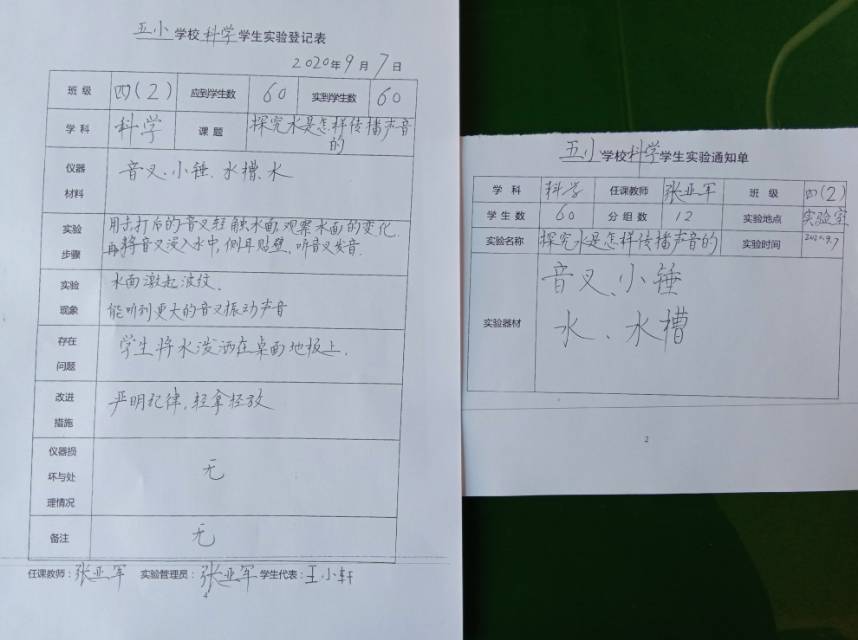 五小学校科学学生实验登记表
2020年9月7日
班级 四(2) 应到学生数 60 实到学生数 60
学科 科学 课题 探究水是怎样传播声音的
仪器材料 音叉、小锤、水槽、水
实验步骤 用击打后的音叉轻触水面,观察水面的变化.
再将音叉浸入水中,侧耳贴壁,听音叉发音.
实验现象 水面激起波纹.
能听到更大的音叉振动声音
存在问题 学生将水泼洒在桌面地板上.
改进措施 严明纪律,轻拿轻放
仪器损坏与处理情况 无
备注 无
任课教师:张亚军 实验管理员:张亚军 学生代表:王小轩
4
五小学校科学学生实验通知单
学科 科学 任课教师 张亚军 班级 四(2)
学生数 60 分组数 12 实验地点 实验室
实验名称 探究水是怎样传播声音的 实验时间 2020.9.7
实验器材 音叉、小锤
水、水槽
2